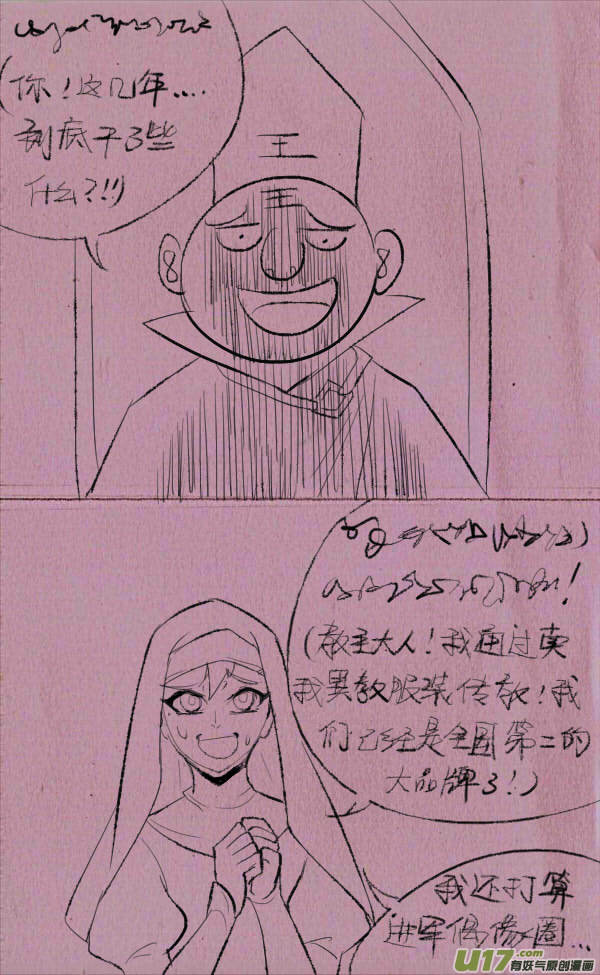 (你！这几年....
到底干了些
什么?!!)
王
王
(教主大人！我通过卖
我异教服装传教！我
们已经是全国第二的
大品牌了！)
我还打算
进军偶像圈...
U17.com
有妖气原创漫画